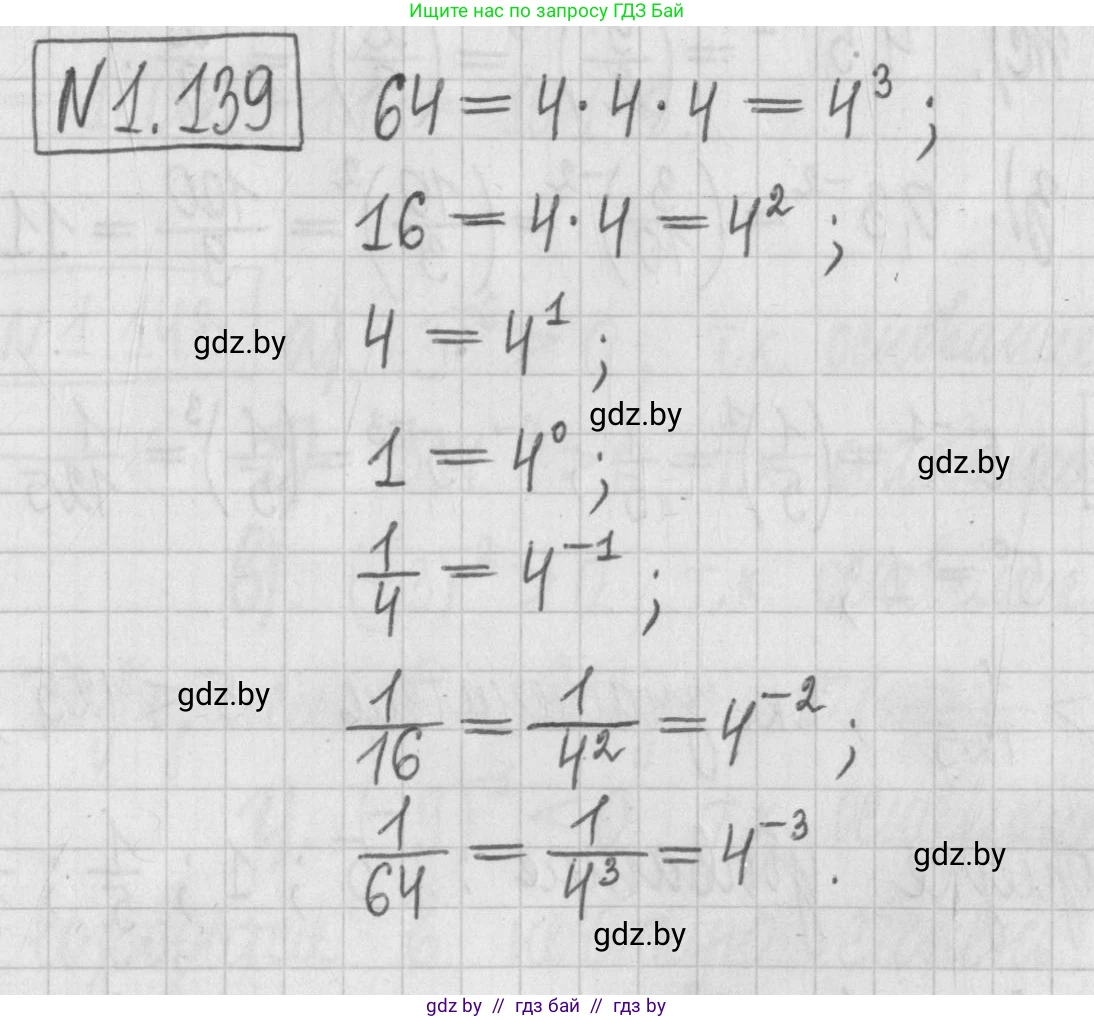 Ищите нас по запросу ГДЗ Бай
N 1.139 64 = 4 · 4 · 4 = 4³ ;
16 = 4 · 4 = 4² ;
gdz.by 4 = 4¹ ;
gdz.by
1 = 4⁰ ; gdz.by
1/4 = 4⁻¹ ;
gdz.by 1/16 = 1/4² = 4⁻² ;
1/64 = 1/4³ = 4⁻³ . gdz.by
gdz.by
gdz by // гдз бай // гдз by